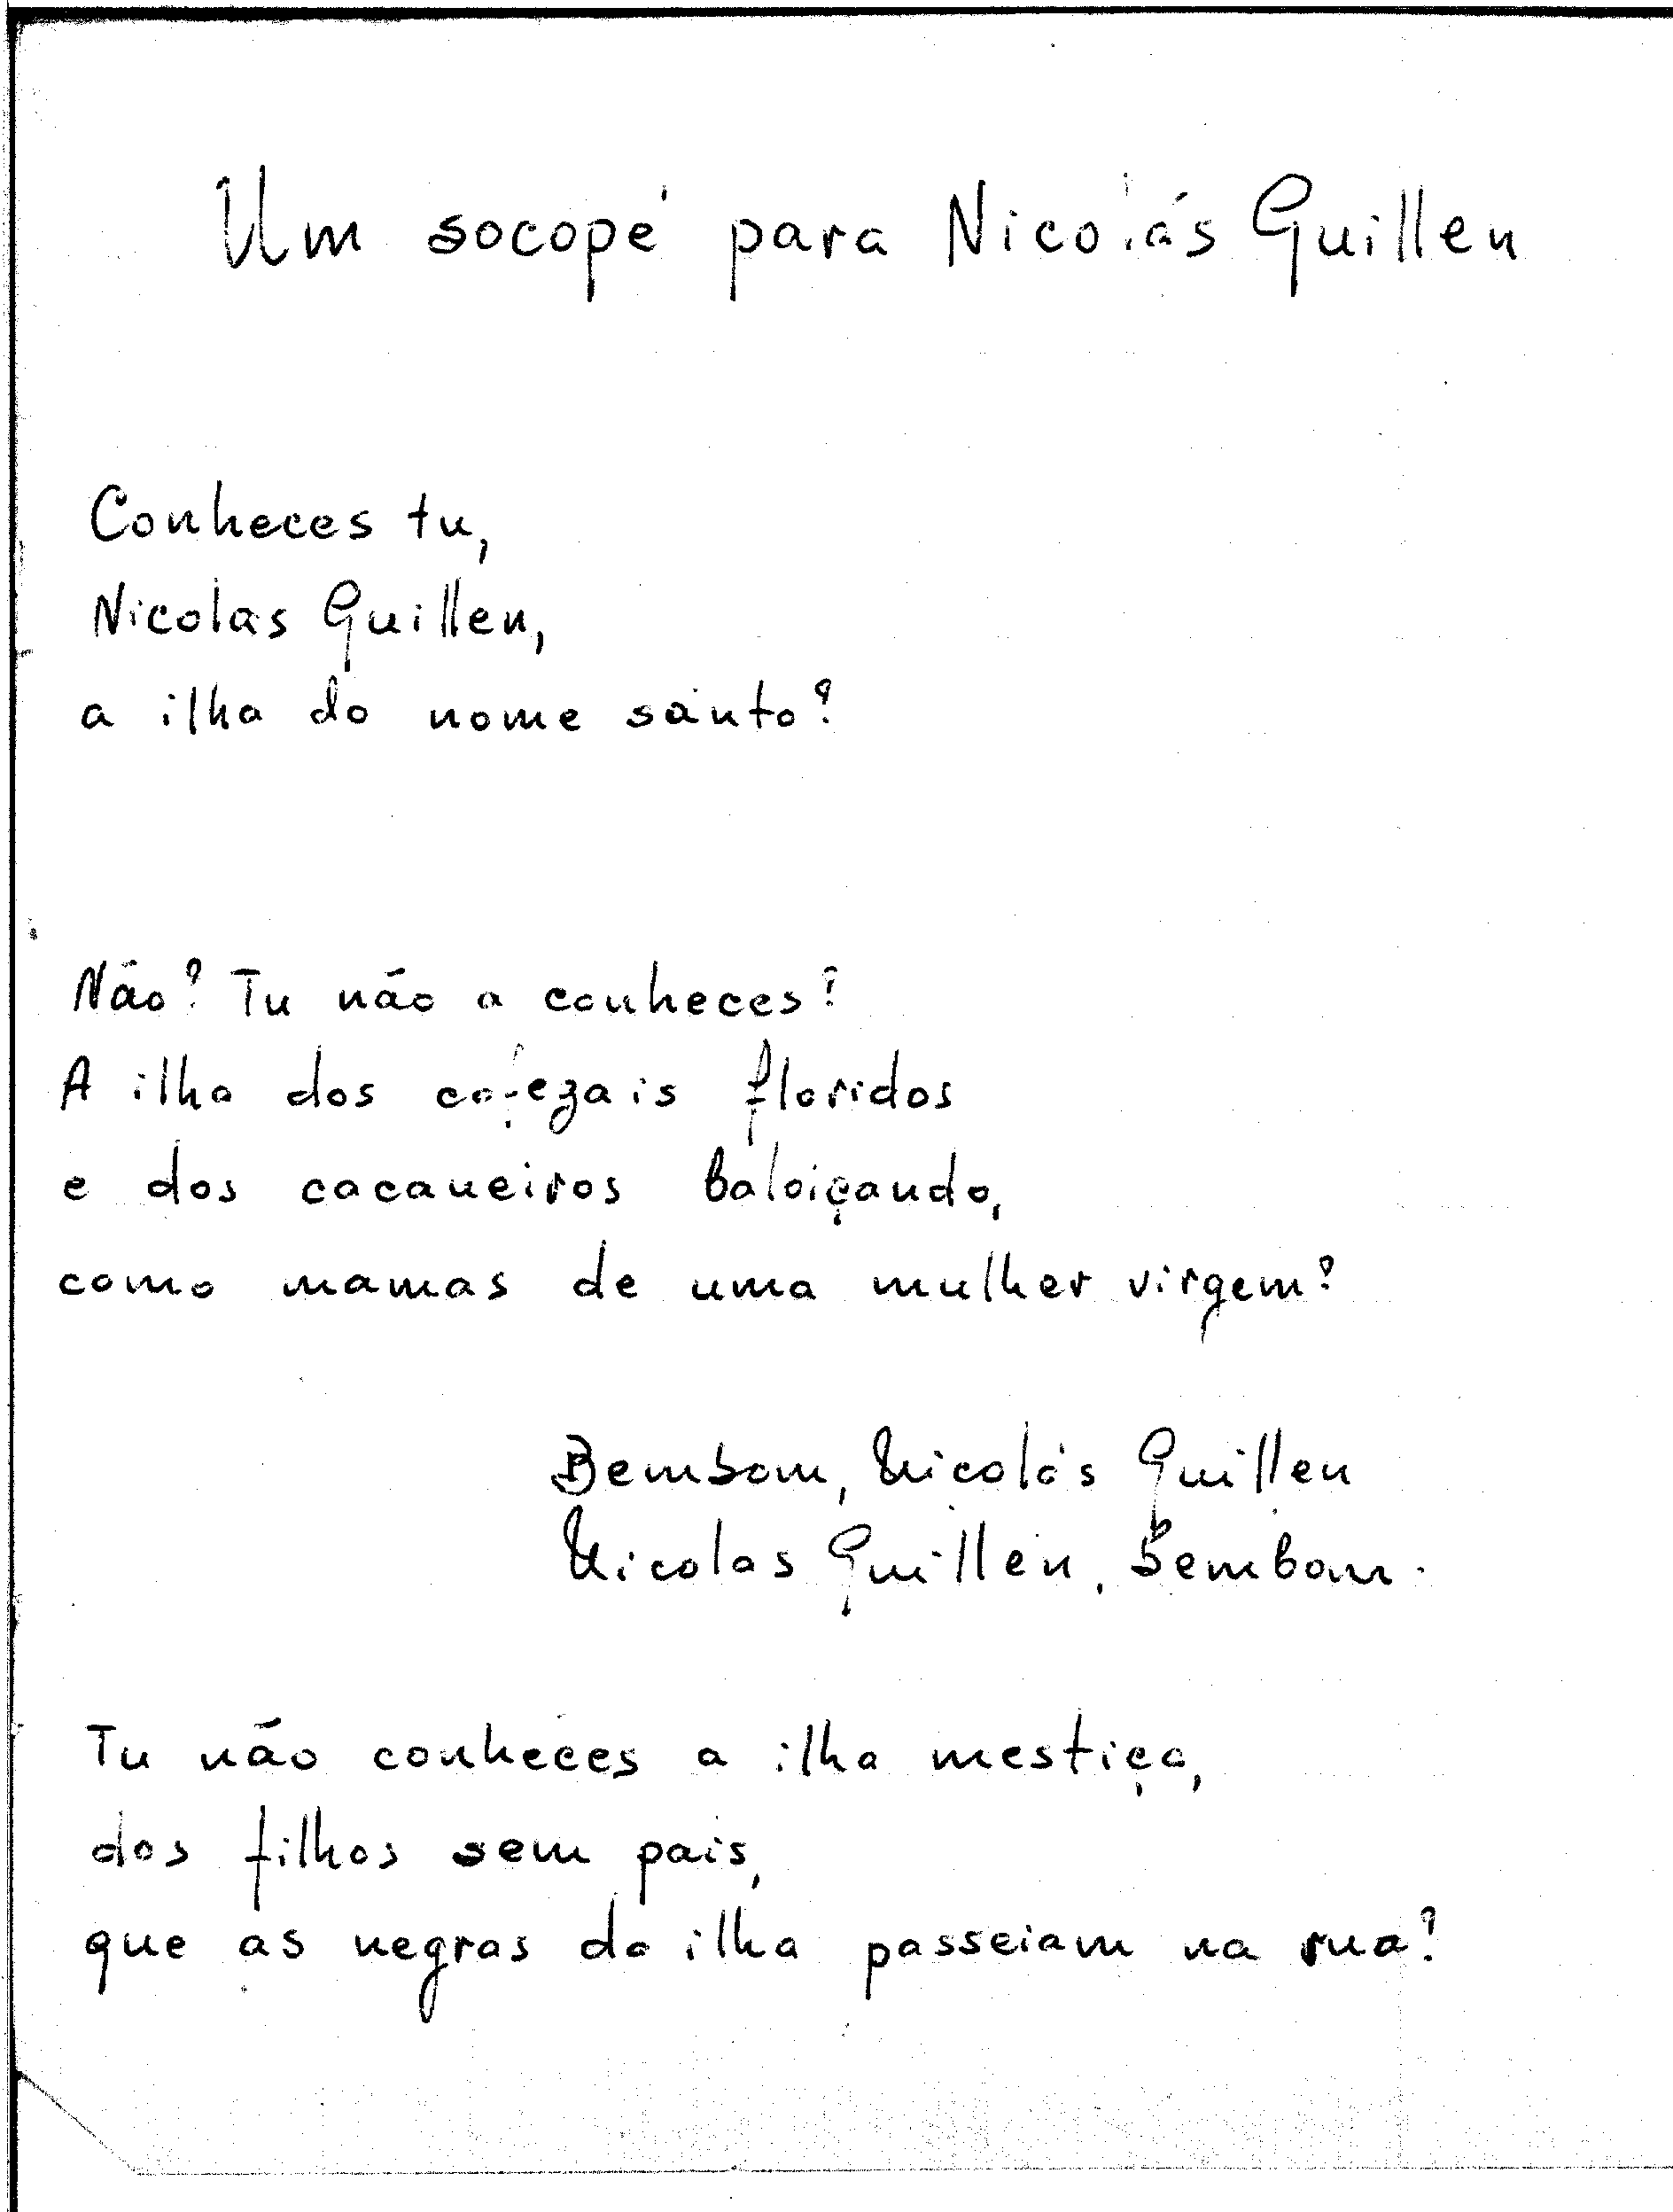 Um socopé para Nicolás Guillen
Conheces tu,
Nicolas Guillen,
a ilha do nome santo?
Não? Tu não a conheces?
A ilha dos cafezais floridos
e dos cacaueiros baloiçando,
como mamas de uma mulher virgem?
Bembom, Nicolás Guillen
Nicolas Guillen, Bembom.
Tu não conheces a ilha mestiça,
dos filhos sem pais,
que as negras da ilha passeiam na rua?